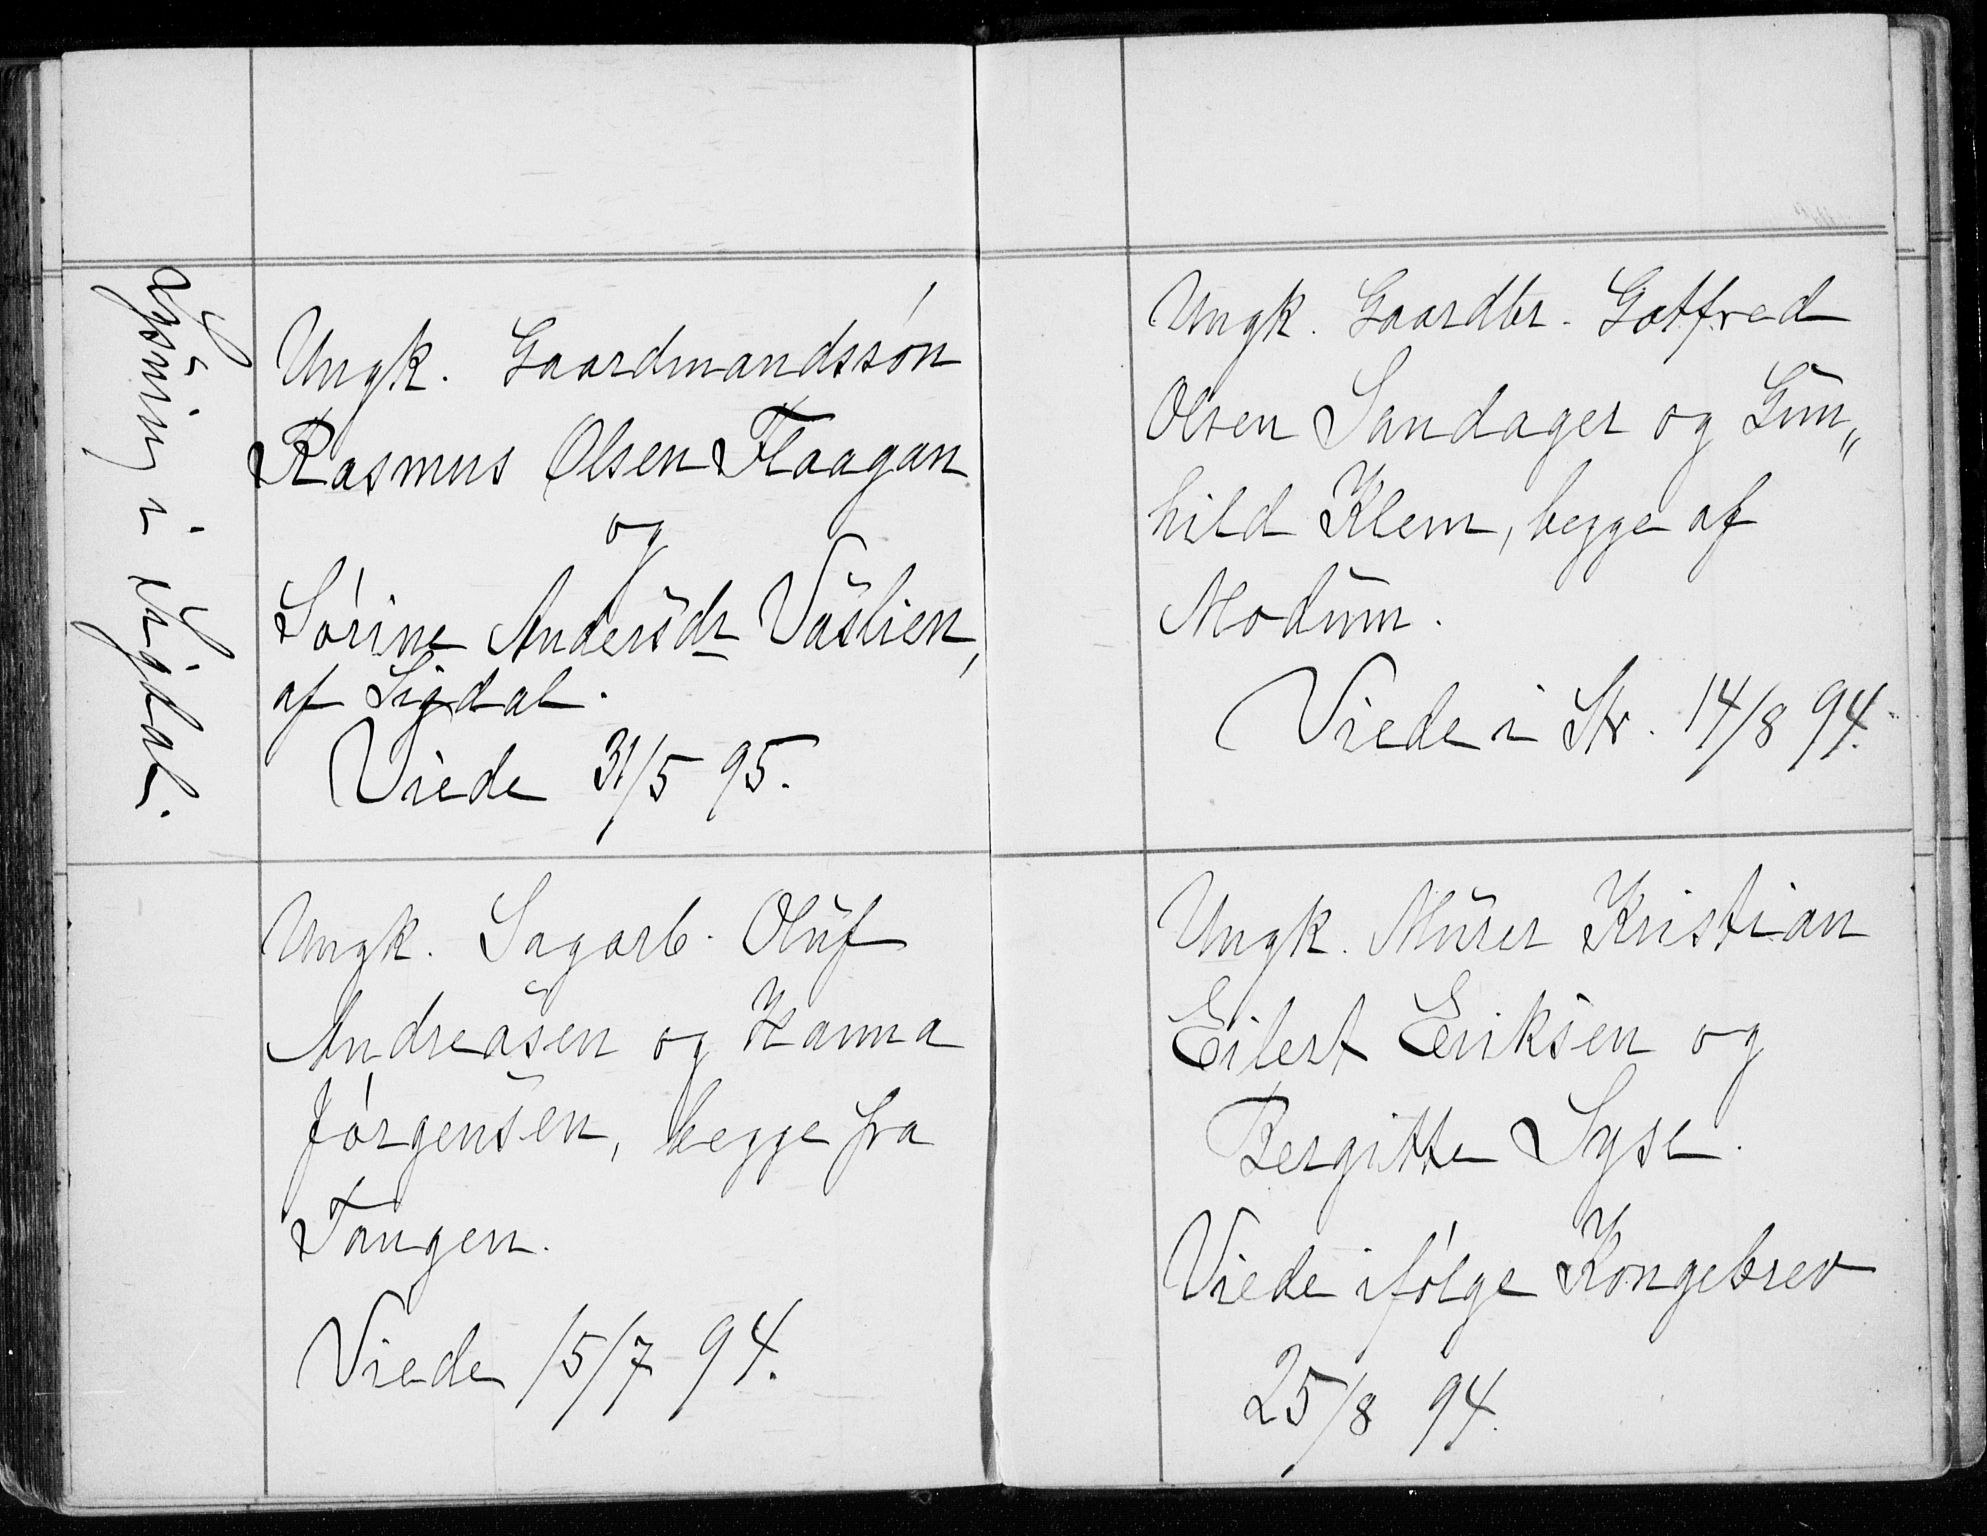 Lysning i Sigdal.
Ungk. Gaardmandssøn
Rasmus Olsen Flaagan
og
Sørine Andersdr Vaslien,
af Sigdal.
Viede 31/5 95.
Ungk. Sagarb. Oluf
Andreasen og Hanna
Jørgensen, begge fra
Tangen.
Viede 15/7 94.
Ungk. Gaardbr. Gotfred
Olsen Sandager og Gun„
hild Klem, begge af
Modum.
Viede i Str. 14/8 94.
Ungk. Murer Kristian
Eilert Eriksen og
Bergitte Syse.
Viede ifølge Kongebrev
25/8 94.